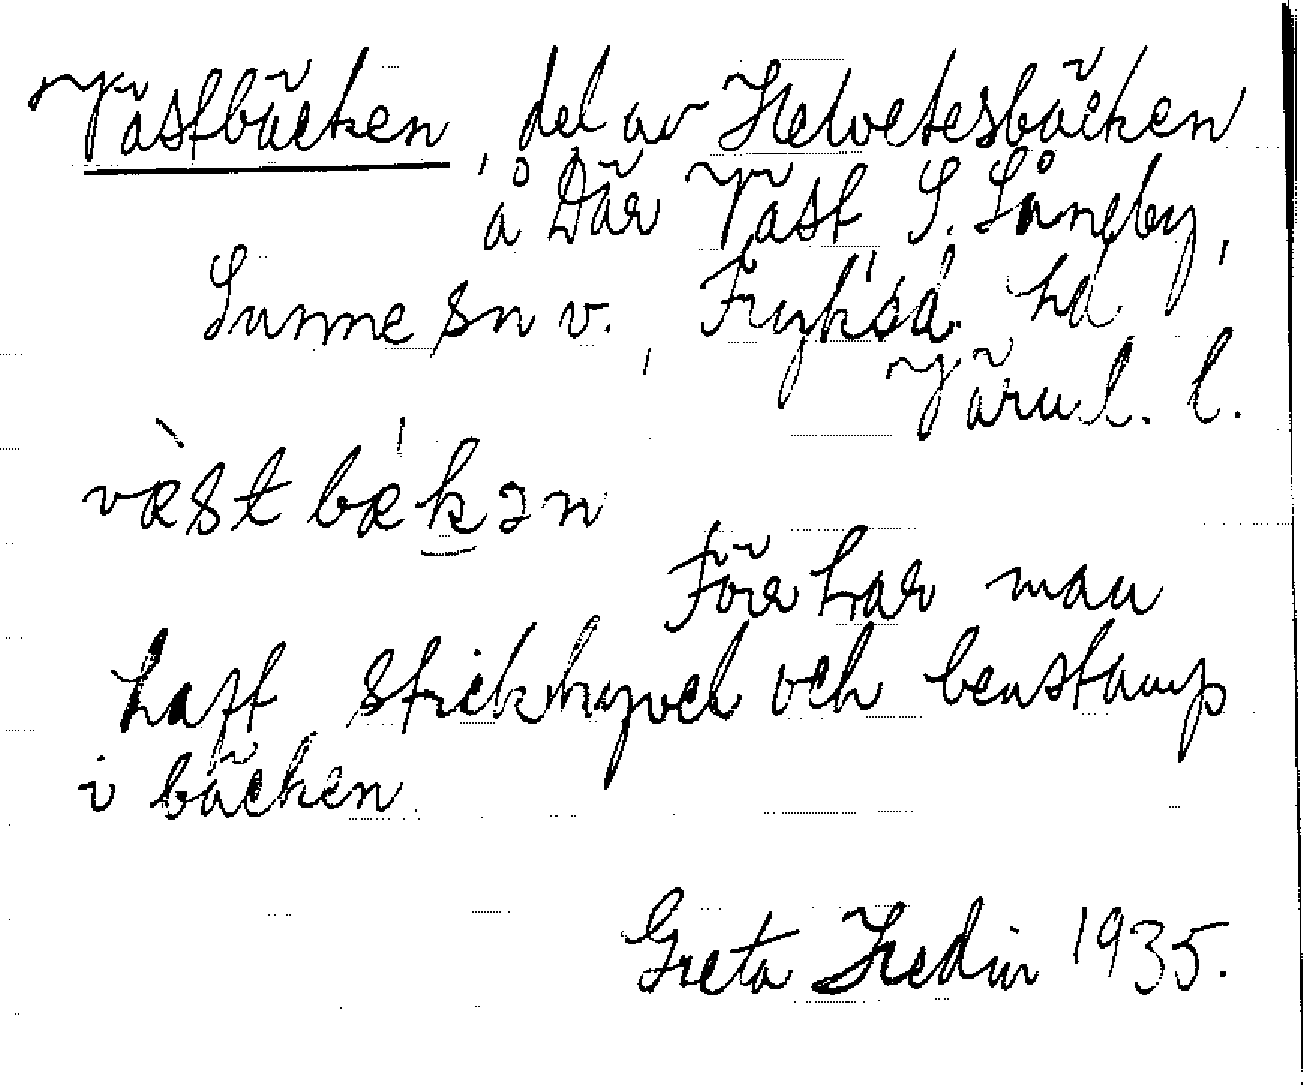 Västbäcken, del av Helvetesbäcken
å Där Väst S. Långby,
Sunne sn v., Fryksd. hd
Värml. l.
væ̀st bæ'kən
Förr har man
haft stickhyvel och benstamp
i bäcken
Greta Hedin 1935.